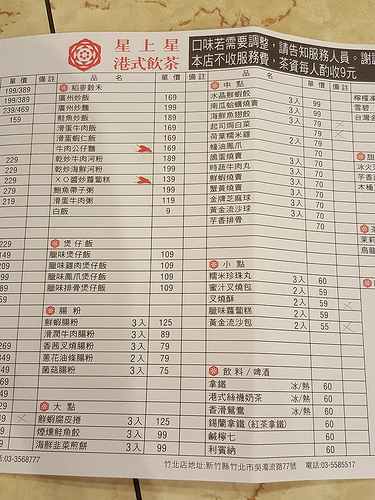 星上星
港式飲茶
口味若需要調整，請告知服務人員。謝謝
本店不收服務費，茶資每人酌收9元
單價 備註 品名 單價 備註 品名 單價 備註
稻麥穀禾
廣州炒飯 169
廣州炒麵 199
鮭魚炒飯 189
滑蛋牛肉飯 169
滑蛋蝦仁飯 169
牛肉公仔麵 169
乾炒牛肉河粉 189
乾炒海鮮河粉 199
XO醬炒蘿蔔糕 139
鮑魚帶子粥 199
滑蛋牛肉粥 119
白飯 9
煲仔飯
臘味煲仔飯 109
臘味雞肉煲仔飯 109
臘味鳳爪煲仔飯 109
臘味排骨煲仔飯 109
腸粉
鮮蝦腸粉 3入 125
滑潤牛肉腸粉 3入 89
香茜叉燒腸粉 3入 79
蔥花油條腸粉 2入 79
菌菇腸粉 3入 75
大點
鮮蝦腐皮捲 3入 125
煙燻鮭魚餃 3入 99
海鮮韭菜煎餅 3入 99
中點
水晶鮮蝦餃 3入 99
南瓜蛤蠣燒賣 3入 99
海鮮魚翅餃 3入 89
起司焗白菜 79
荷葉糯米雞 79
蠔油鳳爪 2入 79
鴿蛋燒賣 70
時蔬牛肉丸 3入 70
鮮蝦燒賣 3入 70
蟹黃燒賣 3入 70
金牌芝麻球 3入 70
黃金流沙球 3入 70
芋香排骨 70
小點
糯米珍珠丸 3入 60
蜜汁叉燒包 2入 59
叉燒酥 2入 59
臘味蘿蔔糕 2入 59
黃金流沙包 2入 55
飲料/啤酒
拿鐵 冰/熱 60
港式絲襪奶茶 冰/熱 60
香滑鴛鴦 冰/熱 60
錫蘭拿鐵(紅茶拿鐵) 60
鹹檸七 60
利賓納 60
199/389
199/389
239/469
159
229
229
229
279
219
:03-3568777
竹北店地址:新竹縣竹北市吳濁流路77號 電話:03-5585517